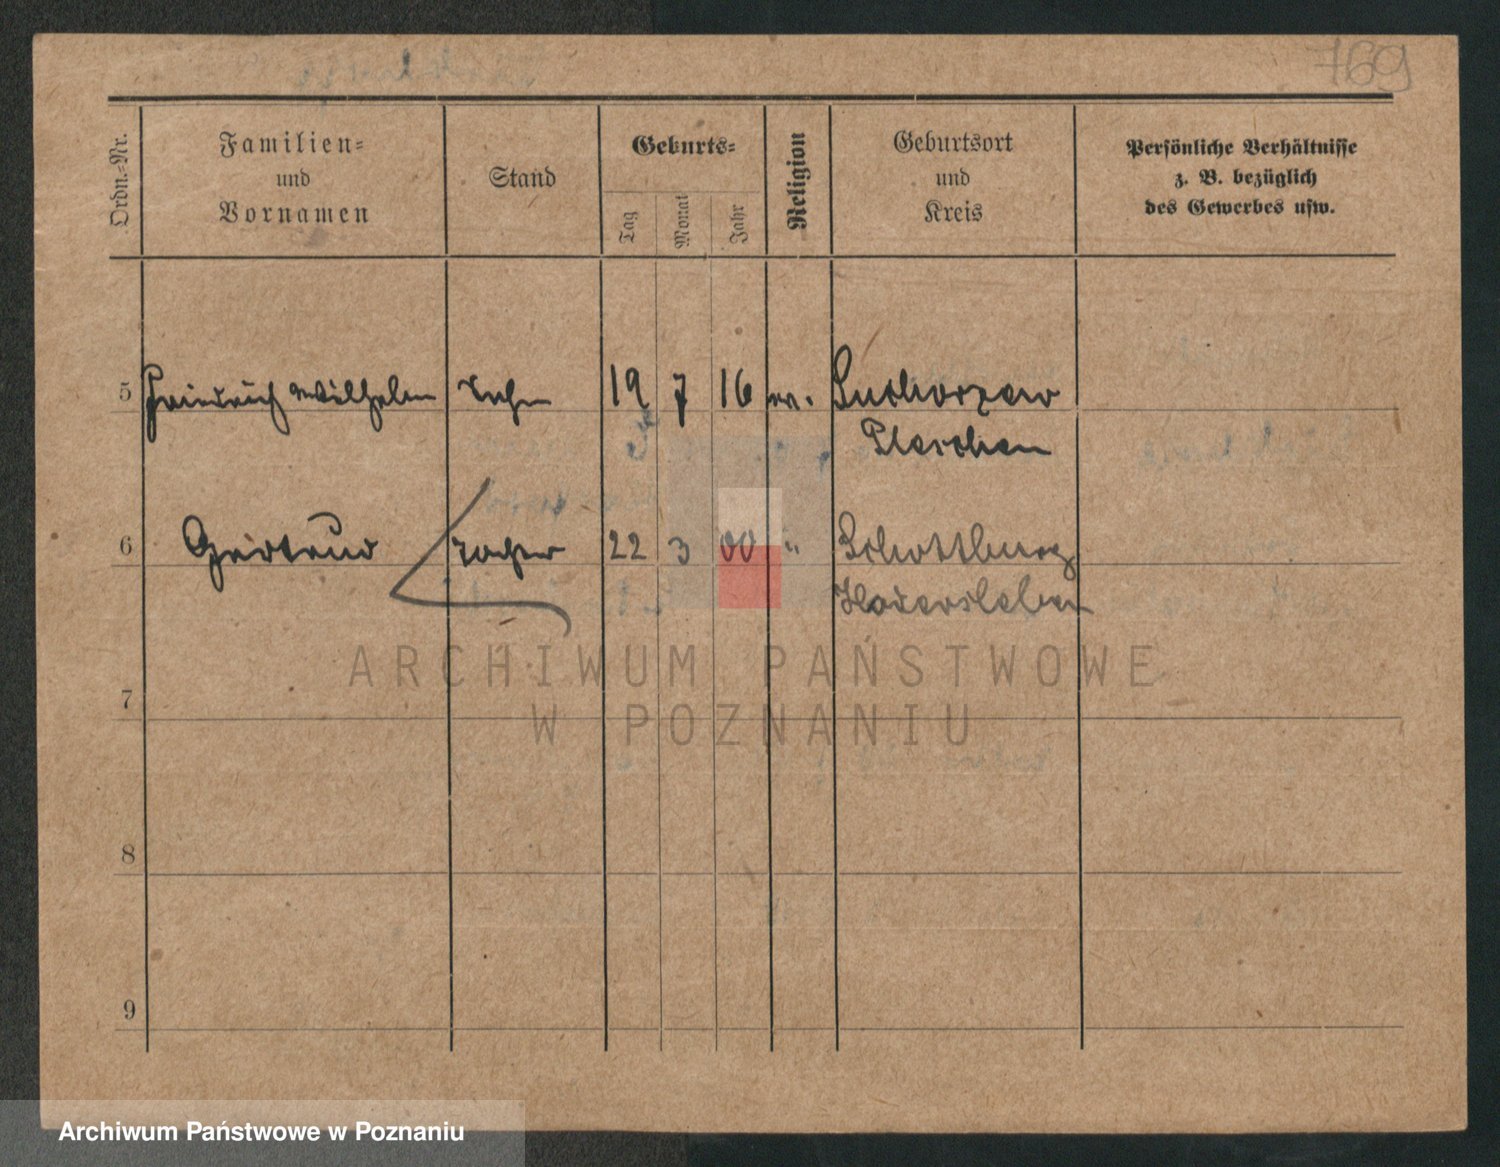 769
Ordn.-Nr.
Familien-
und
Vornamen
Stand
Geburts-
Tag
Monat
Jahr
Religion
Geburtsort
und
Kreis
Persönliche Verhältnisse
z. B. bezüglich
des Gewerbes usw.
5 Friedrich Wilhelm Sohn 19 7 16 ev. Suchorzew
Pleschen
6 Gertrud Tochter 22 3 00 " Schottburg
Hadersleben
7
8
9
ARCHIWUM PAŃSTWOWE
W POZNANIU
Archiwum Państwowe w Poznaniu